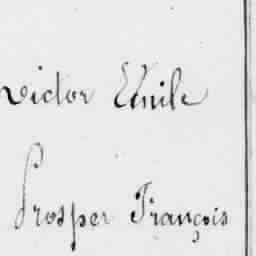 Victor Emile
Prosper François